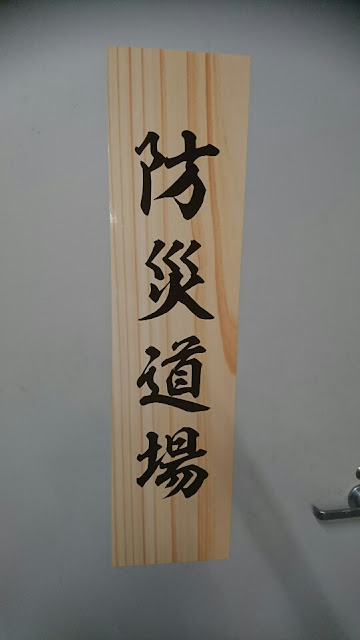 防災道場